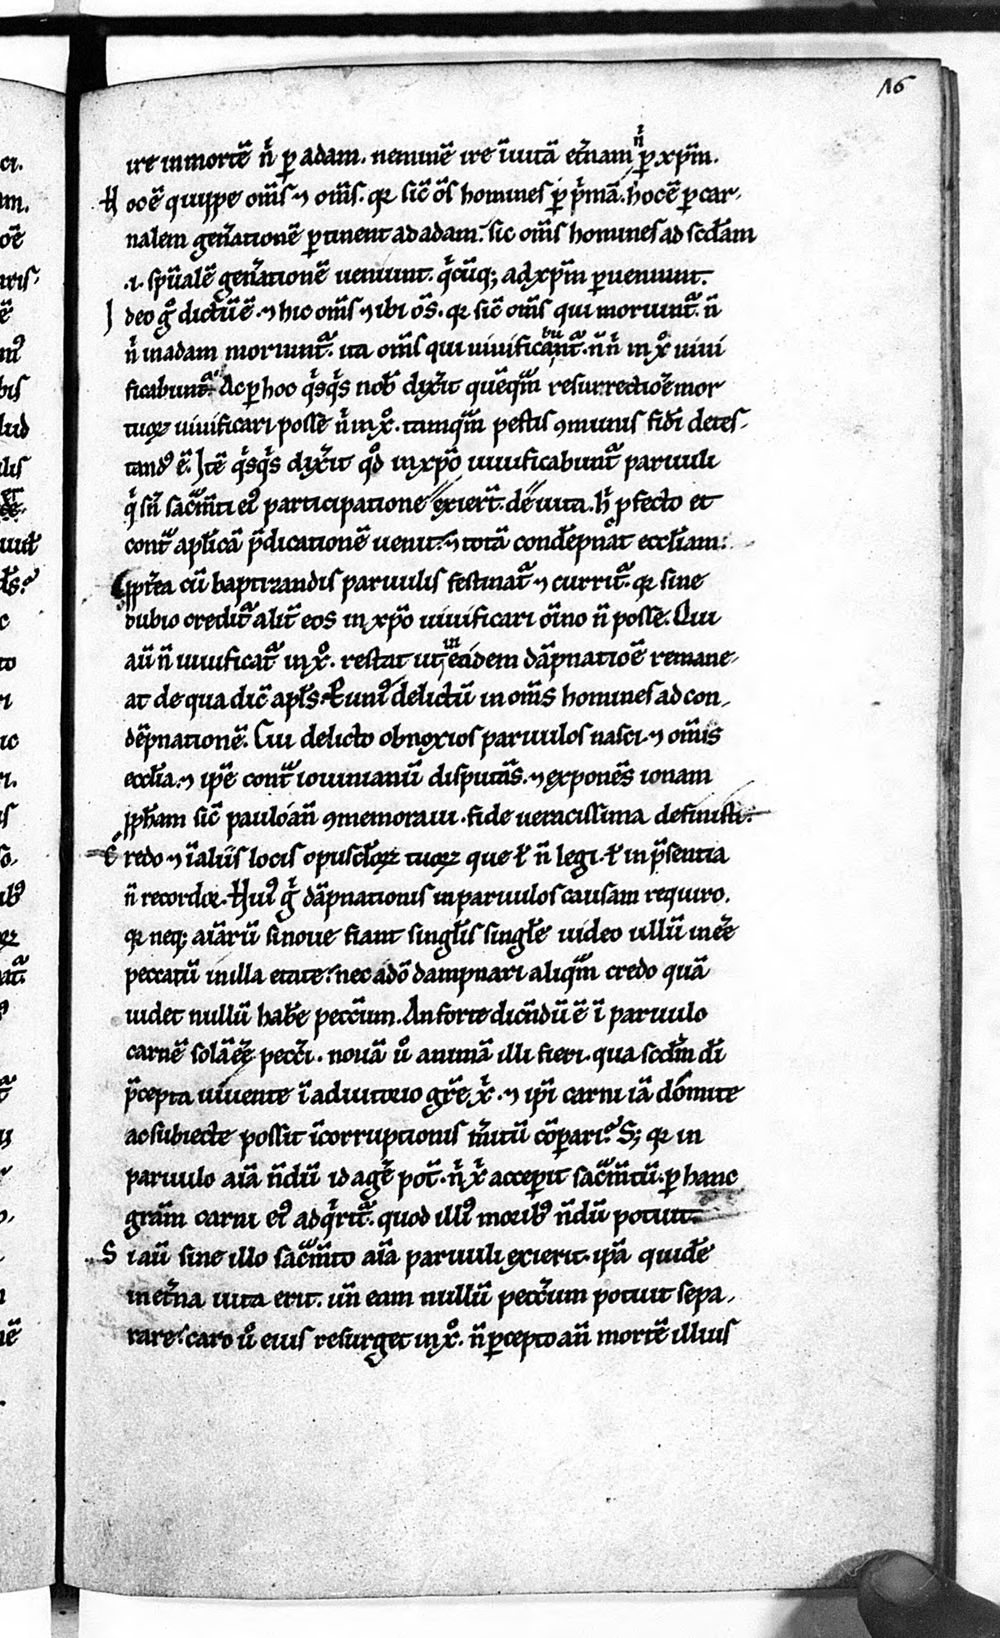 16
ire inmortē nͥ ꝑ adam. neminē ire ī uitā et̄nam nͥ ꝑ xp̄m.
Hocē quippe om̄s ⁊ om̄s. qꝛ sic̄ om̄s homines ꝑ pͥmā. hocē ꝑ car-
nalem gen̄ationē ꝑtinent ad adam. sic om̄s homines ad scd̄am
.i. spūalē gen̄ationē ueniunt. qͥcūq; ad xp̄m ꝑueniunt.
Ideo gͦ dictū ē. ⁊ hic om̄s ⁊ ibi om̄s. qꝛ sic̄ om̄s qui moriunt᷑. n̄
nͥ in adam moriunt᷑. ita om̄s qui uiuificabunt᷑. n̄ nͥ in xͦ uiui
ficabunt᷑. Ac ꝑ hoc qͥsqͥs nob̄ dix̄it quēqm̄ resurrectiōe mor
tuoꝝ uiuificari posse nͥ in xͦ. tamqm̄ pestis ꝯmunis fid̄i detes-
tandꝰ ē. Itē qͥsqͥs dix̄it qd̄ in xp̄o uiuificabunt᷑ paruuli
qͥ sn̄ sac̄mti eiꝰ participatione exiert̄. de uita. hͨ ꝓfecto et
cont᷑ apl̄icā p̄dicationē uenit. ⁊ totā condēpnat eccl̄iam.
ꝓpt̄ea cū baptizandis paruulis festinat᷑ ⁊ currit᷑. qꝛ sine
dubio credit᷑ alit̄ eos in xp̄o uiuificari om̄ino n̄ posse. Qui
aū n̄ uiuificat᷑ in xͦ. restat ut in eādem dāpnatiōe remane-
at de qua dic̄ apl̄s. ꝑ uniꝰ delictū in om̄s homines ad con-
dēpnationē. Cui delicto obnoxios paruulos nasci. ⁊ om̄is
eccl̄ia. ⁊ ip̄e cont᷑ iouinianū disputās. ⁊ exponēs ionam
ꝓph̄am sic̄ paulo an̄ ꝯmemoraui. fide ueracissima definisti.
Credo ⁊ ī aliis locis opuscl̄oꝝ tuoꝝ que ł n̄ legi. ł in p̄sentia
n̄ recordoꝛ. Huiꝰ gͦ dāpnationis in paruulos causam requiro.
qꝛ neq; aīarū si noue fiant singl̄is singl̄e uideo ullū inēe
peccatū in illa etate. nec a dō dampnari aliqm̄ credo quā
uidet nullū hab̄e pecc̄um. An forte dicn̄dū ē ī paruulo
carnē solā ēē pecc̄i. nouā ū animā illi fieri. qua scd̄m dī
p̄cepta uiuente ī adiutorio gr̄e xͥ. ⁊ ip̄i carni iā domite
ac subiecte possit īcorruptionis m̄itū cōparari. S; qꝛ in
paruulo aīa n̄dū id agē pot̄. nͥ xͥ acceperit sac̄mtū. ꝑ hanc
gr̄am carni eiꝰ adqͥrit᷑. quod illiꝰ moribꝰ n̄dū potuit.
Si aū sine illo sac̄mto aīa paruuli exierit. ip̄a quidē
in et̄na uita erit. un̄ eam nullū pecc̄um potuit sepa-
rare. caro ū eius resurget in xͦ. n̄ ꝑcepto an̄ mortē illius